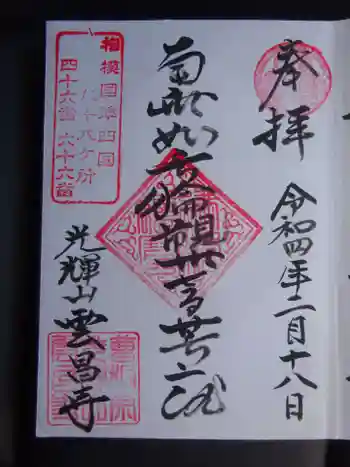 奉拝
令和四年二月十八日
南無如意輪観世音菩薩
相模国準四国
八十八ケ所
四十六番 六十六番
光輝山 雲昌寺